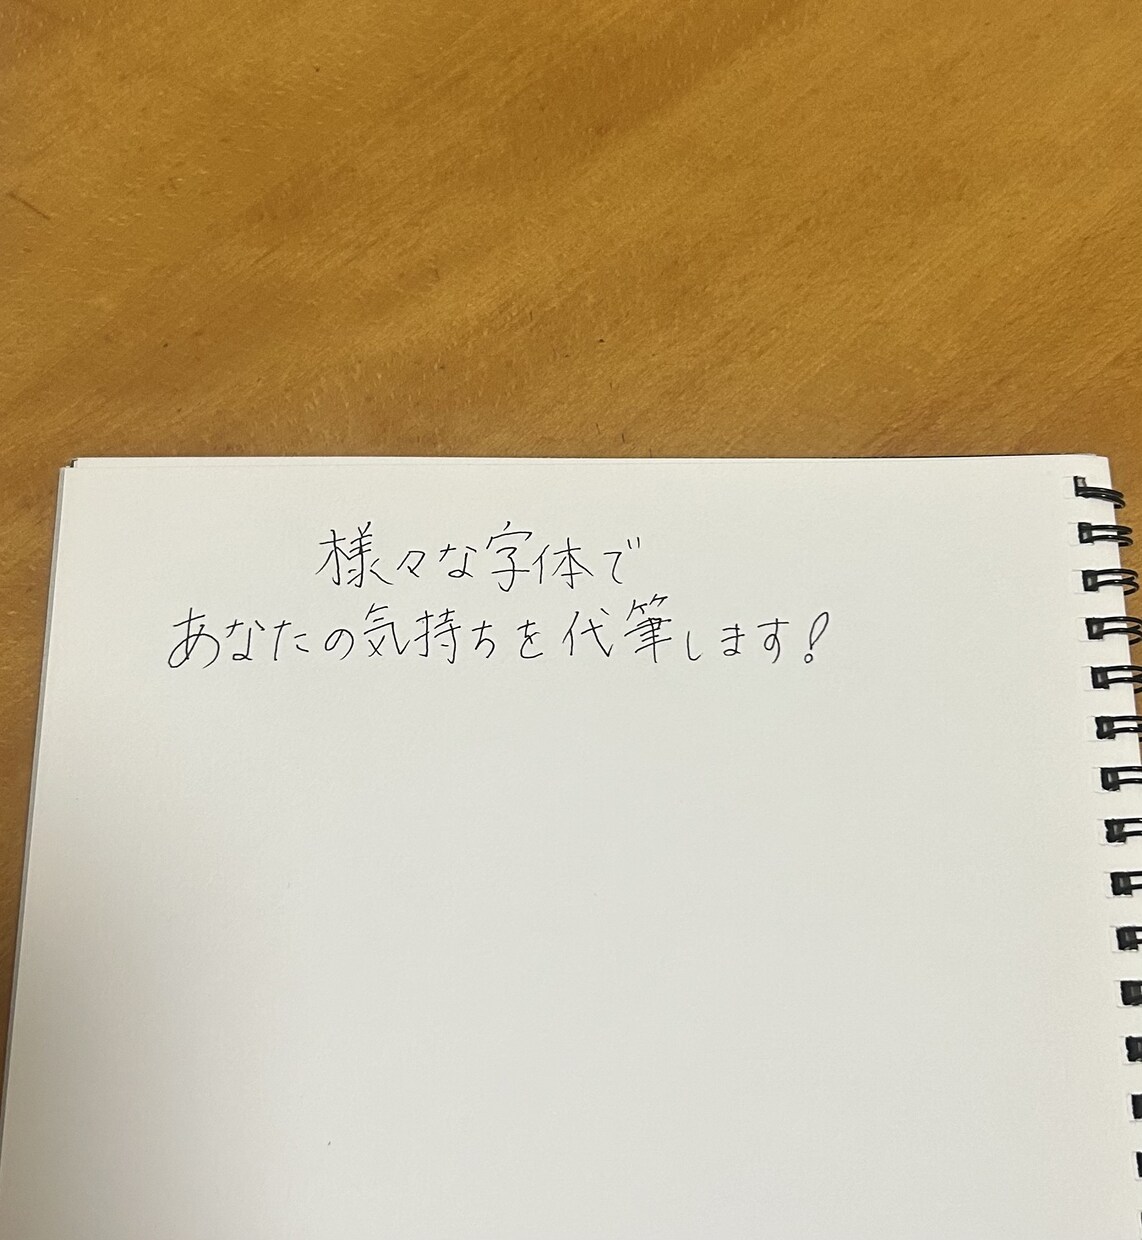 様々な字体で
あなたの気持ちを代筆します!